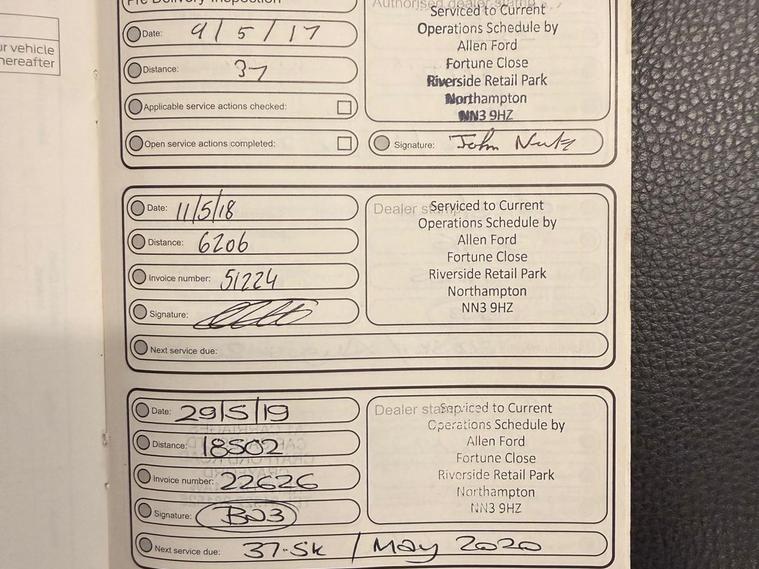 Pre Delivery Inspection
Authorised dealer stamp
Date: 9/5/17
Distance: 37
Applicable service actions checked:
Open service actions completed:
Serviced to Current
Operations Schedule by
Allen Ford
Fortune Close
Riverside Retail Park
Northampton
NN3 9HZ
Signature: John
ur vehicle
hereafter
Date: 11/5/18
Distance: 6206
Invoice number: 51224
Signature:
Next service due:
Dealer stamp
Serviced to Current
Operations Schedule by
Allen Ford
Fortune Close
Riverside Retail Park
Northampton
NN3 9HZ
Date: 29/5/19
Distance: 18502
Invoice number: 22626
Signature:
Next service due: 37.5k / May 2020
Dealer stamp
Serviced to Current
Operations Schedule by
Allen Ford
Fortune Close
Riverside Retail Park
Northampton
NN3 9HZ